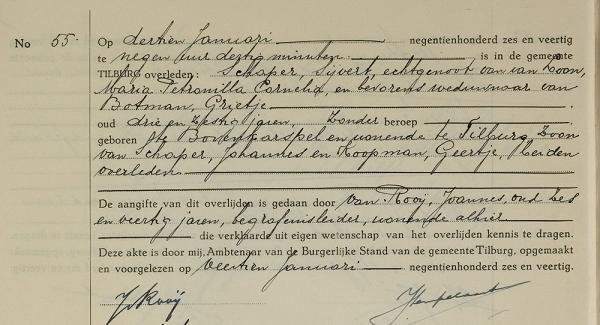 No 55. Op dertien Januari negentienhonderd zes en veertig
te negen uur dertig minuten is in de gemeente
TILBURG overleden: Schaper, Sijvert, echtgenoot van van Loon,
Maria Petronilla Cornelia, en bevorens weduwnaar van
Botman, Grietje
oud drie en zestig jaren, Zonder beroep
geboren te Bovenkarspel en wonende te Tilburg, Zoon
van Schaper, Johannes en Koopman, Geertje, beiden
overleden.
De aangifte van dit overlijden is gedaan door van Rooij, Joannes, oud zes
en veertig jaren, begrafenisleider, wonende alhier
die verklaarde uit eigen wetenschap van het overlijden kennis te dragen.
Deze akte is door mij, Ambtenaar van de Burgerlijke Stand van de gemeente Tilburg, opgemaakt
en voorgelezen op Veertien Januari negentienhonderd zes en veertig.
J v Rooij